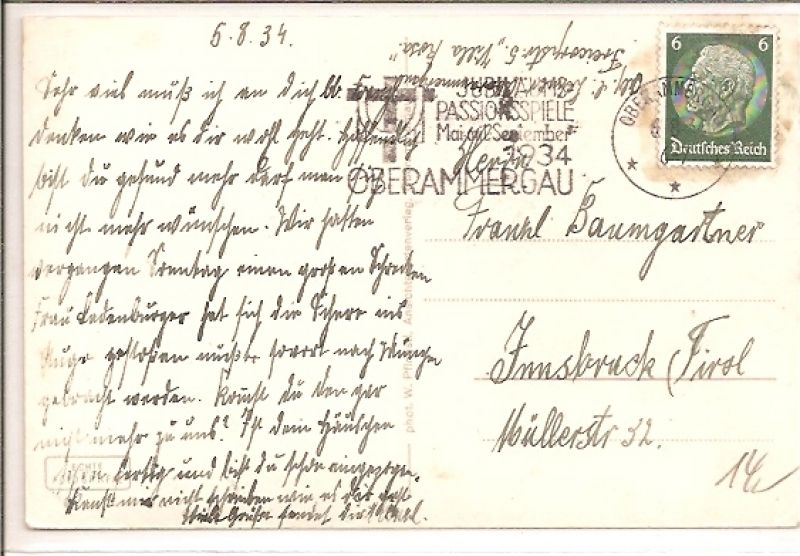 5.8.34.
Sehr viel muß ich an dich lb. Franzl
denken wie es dir wohl geht. Hoffentlich
bist du gesund mehr darf man sich
nicht mehr wünschen. Wir hatten
vergangen Sonntag einen großen Schrecken
Frau Ledenburger hat sich die Schere ins
Auge gestoßen mußte sovort nach München
gebracht werden. Komst du den gar
nicht mehr zu uns? Ist dein Häuschen
schon fertig und bist du schon eingezogen.
Kanst mir nicht schreiben wie es dir geht
Viele Grüße sendet dir
"Villa Rosa"
JUBILÄUMS-
PASSIONSSPIELE
Mai-September
1934
OBERAMMERGAU
OBERAMMERGAU
6 6
Deutsches Reich
Herrn
Franzl Baumgartner
Innsbruck (Tirol
Müllerstr 32.
14
phot. W.
ECHTE